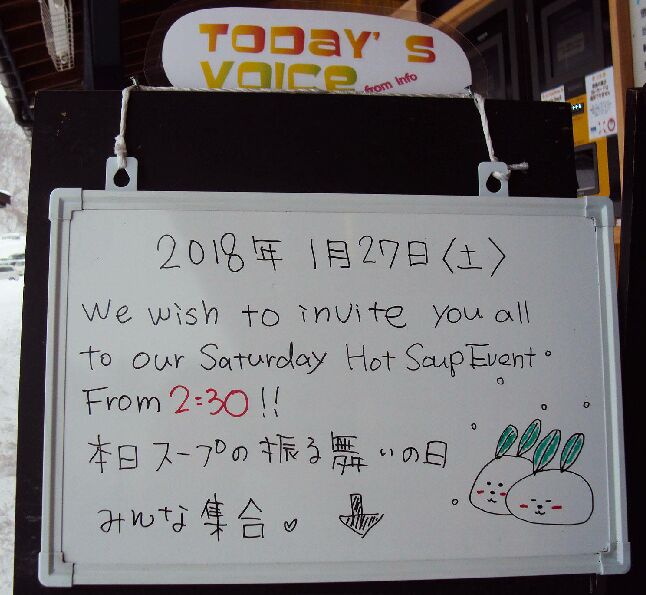 TODAY'S
VOICE from info
2018年 1月27日〈土〉
We wish to invite you all
to our Saturday Hot Soup Event.
From 2:30!!
本日スープの振る舞いの日
みんな集合♡ ↓